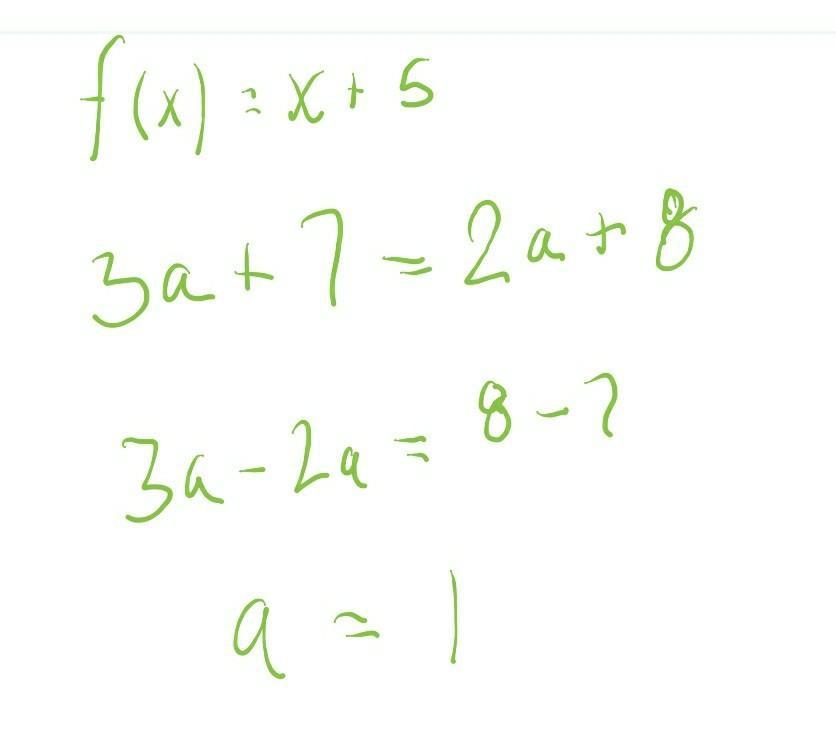 f(x) = x + 5
3a + 7 = 2a + 8
3a - 2a = 8 - 7
a = 1